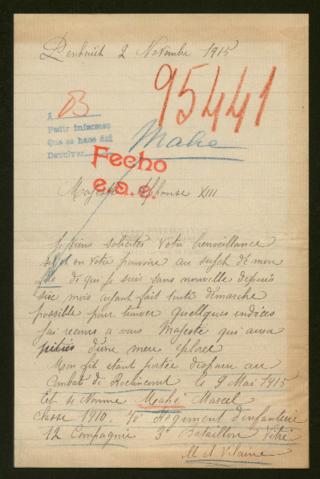 Penhoët 2 Novembre 1915
95441
A B
Pedir informes
Que se hace así
Devolver
Mahé
Fecho
e.o.e.
Majesté Alphonse XIII
Je viens solicitez Votre bienveillance
et en votre pouvoire au sujet de mon
fils de qui je suis sans nouvelle depuis
six mois ayant fait toute démarche
possible pour trouver quelques indices
j'ai recours a vous Majesté qui aura
pitiés d'une mère éplorée
Mon fils étant portée disparu au
Combat de le 9 Mai 1915
Est se Nomme Mahé Marcel
Classe 1910. 70e Régiment d'infanterie
12 Compagnie 3e Bataillon Vitré
Ille et Vilaine